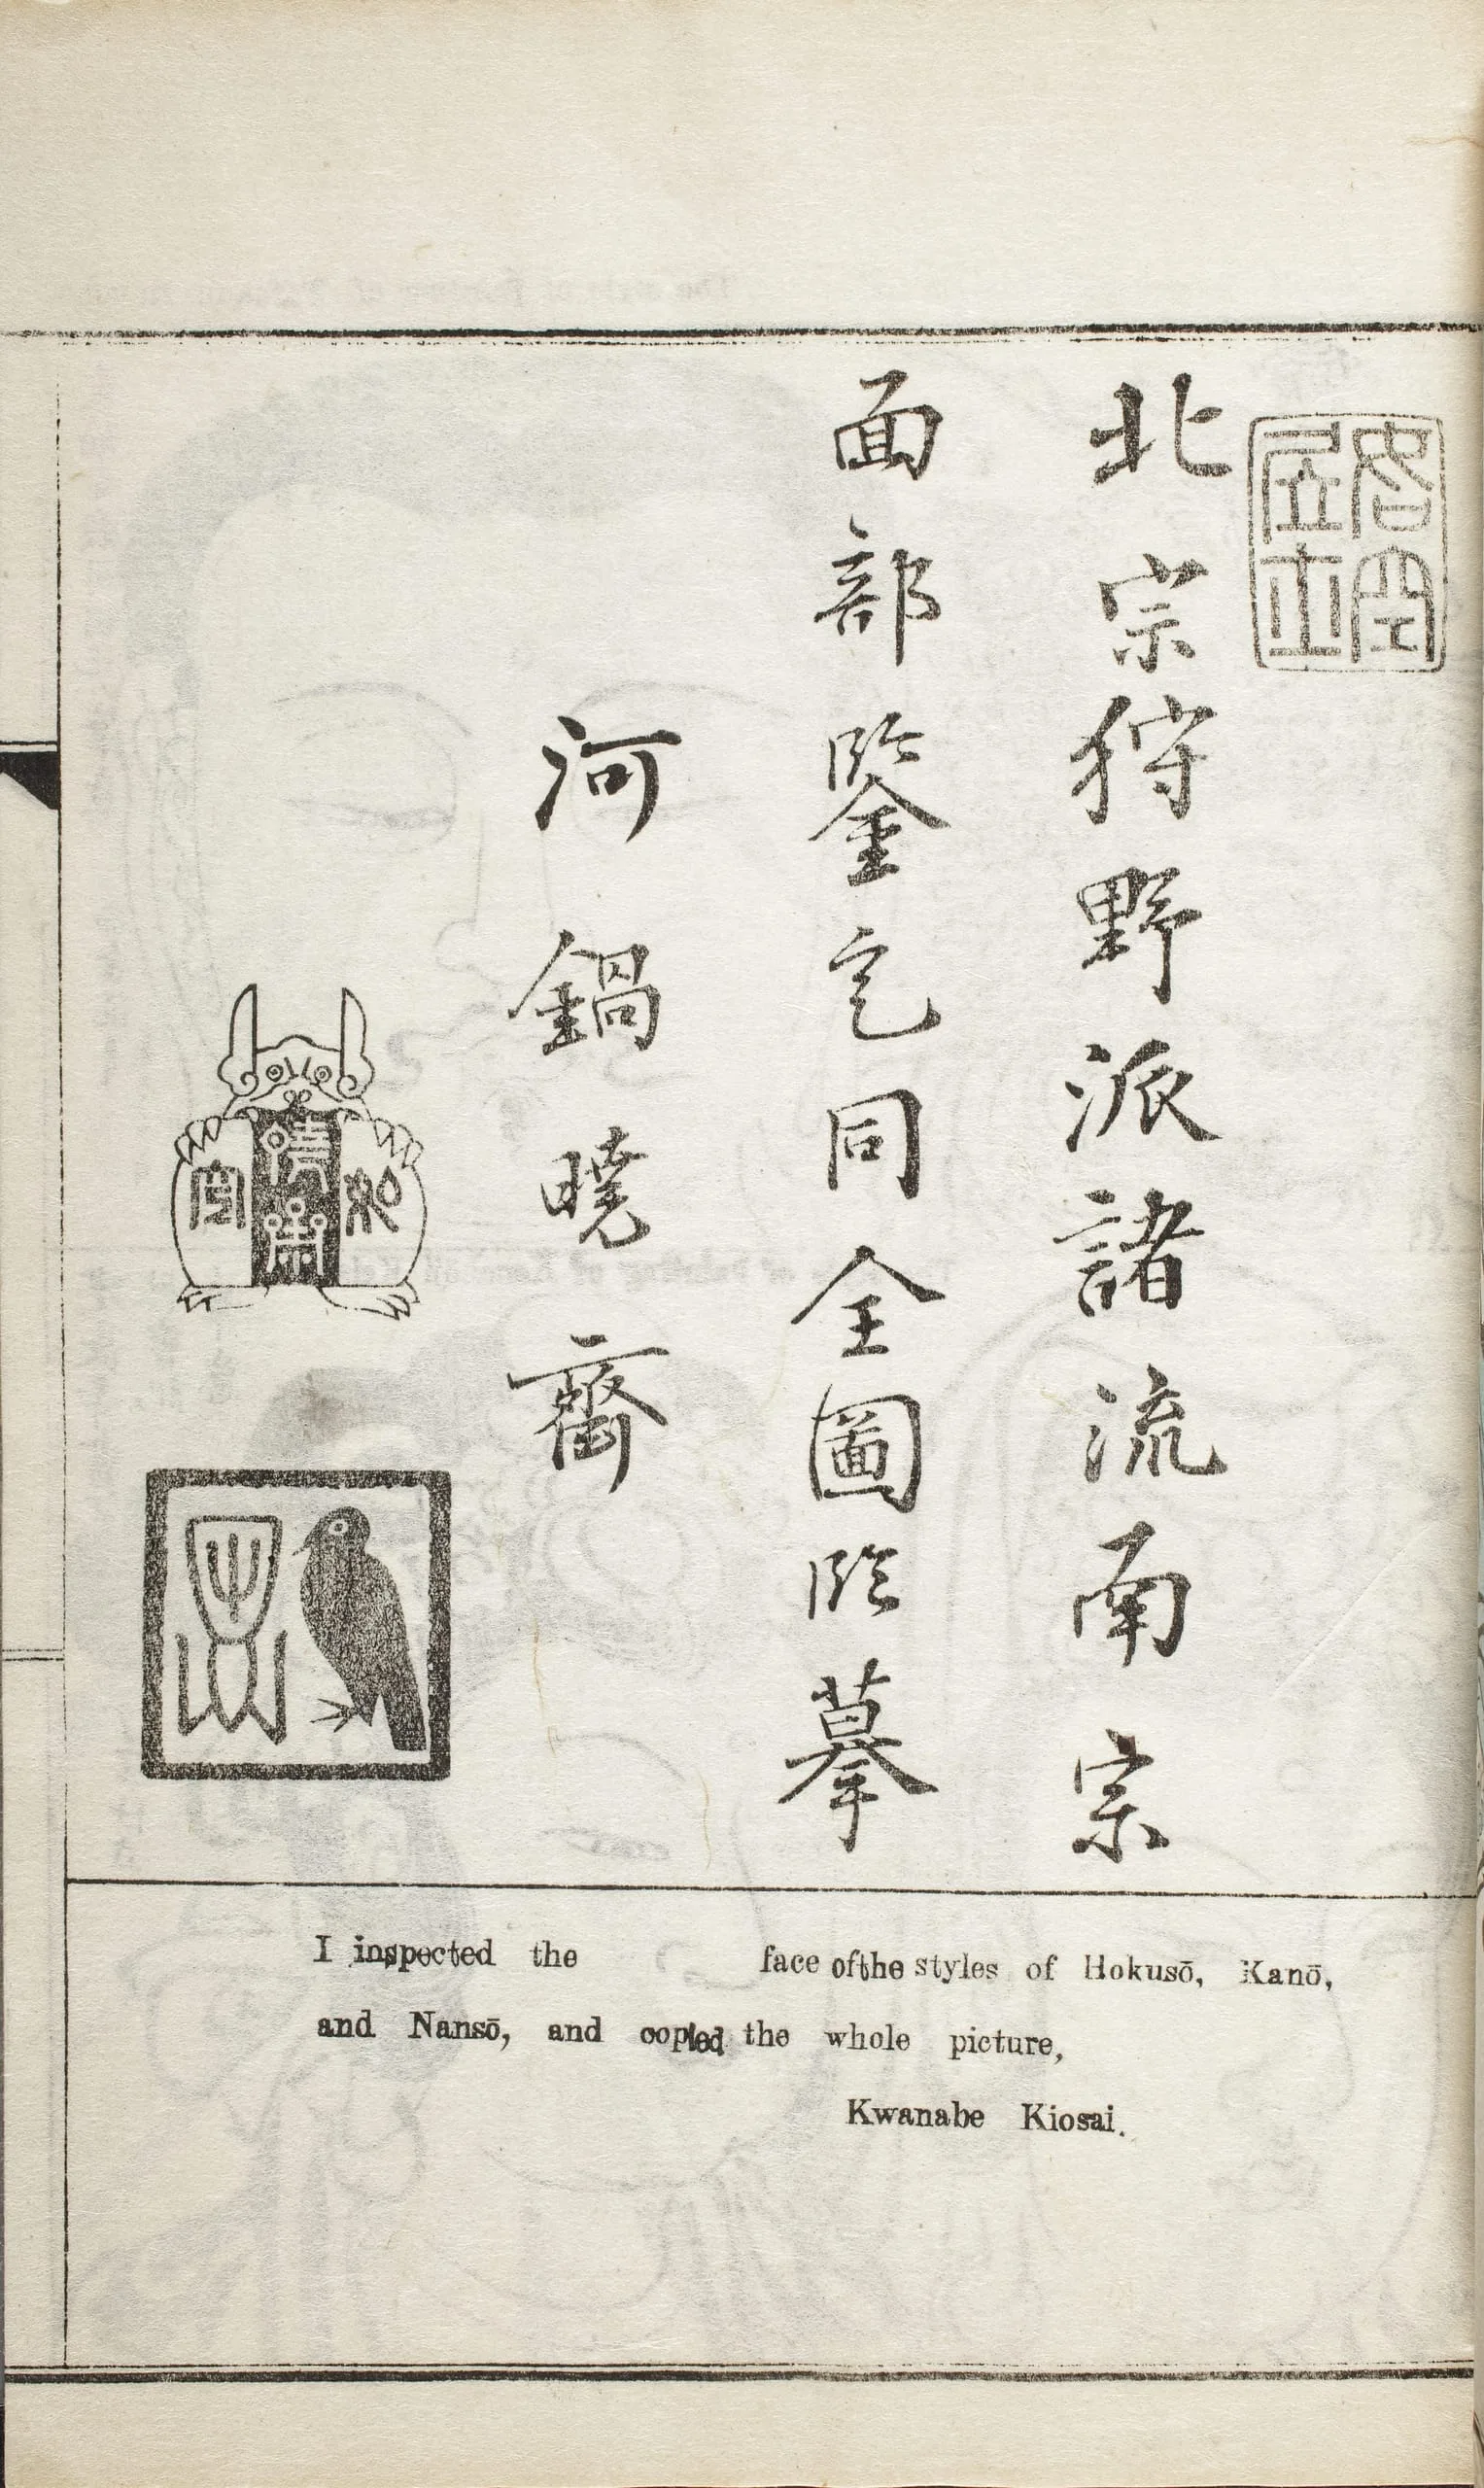 北宗狩野派諸流南宗
面部鑒定同全圖臨摹
河鍋暁齋
I inspected the face of the styles of Hokusō, Kanō,
and Nansō, and copied the whole picture,
Kwanabe Kiosai.